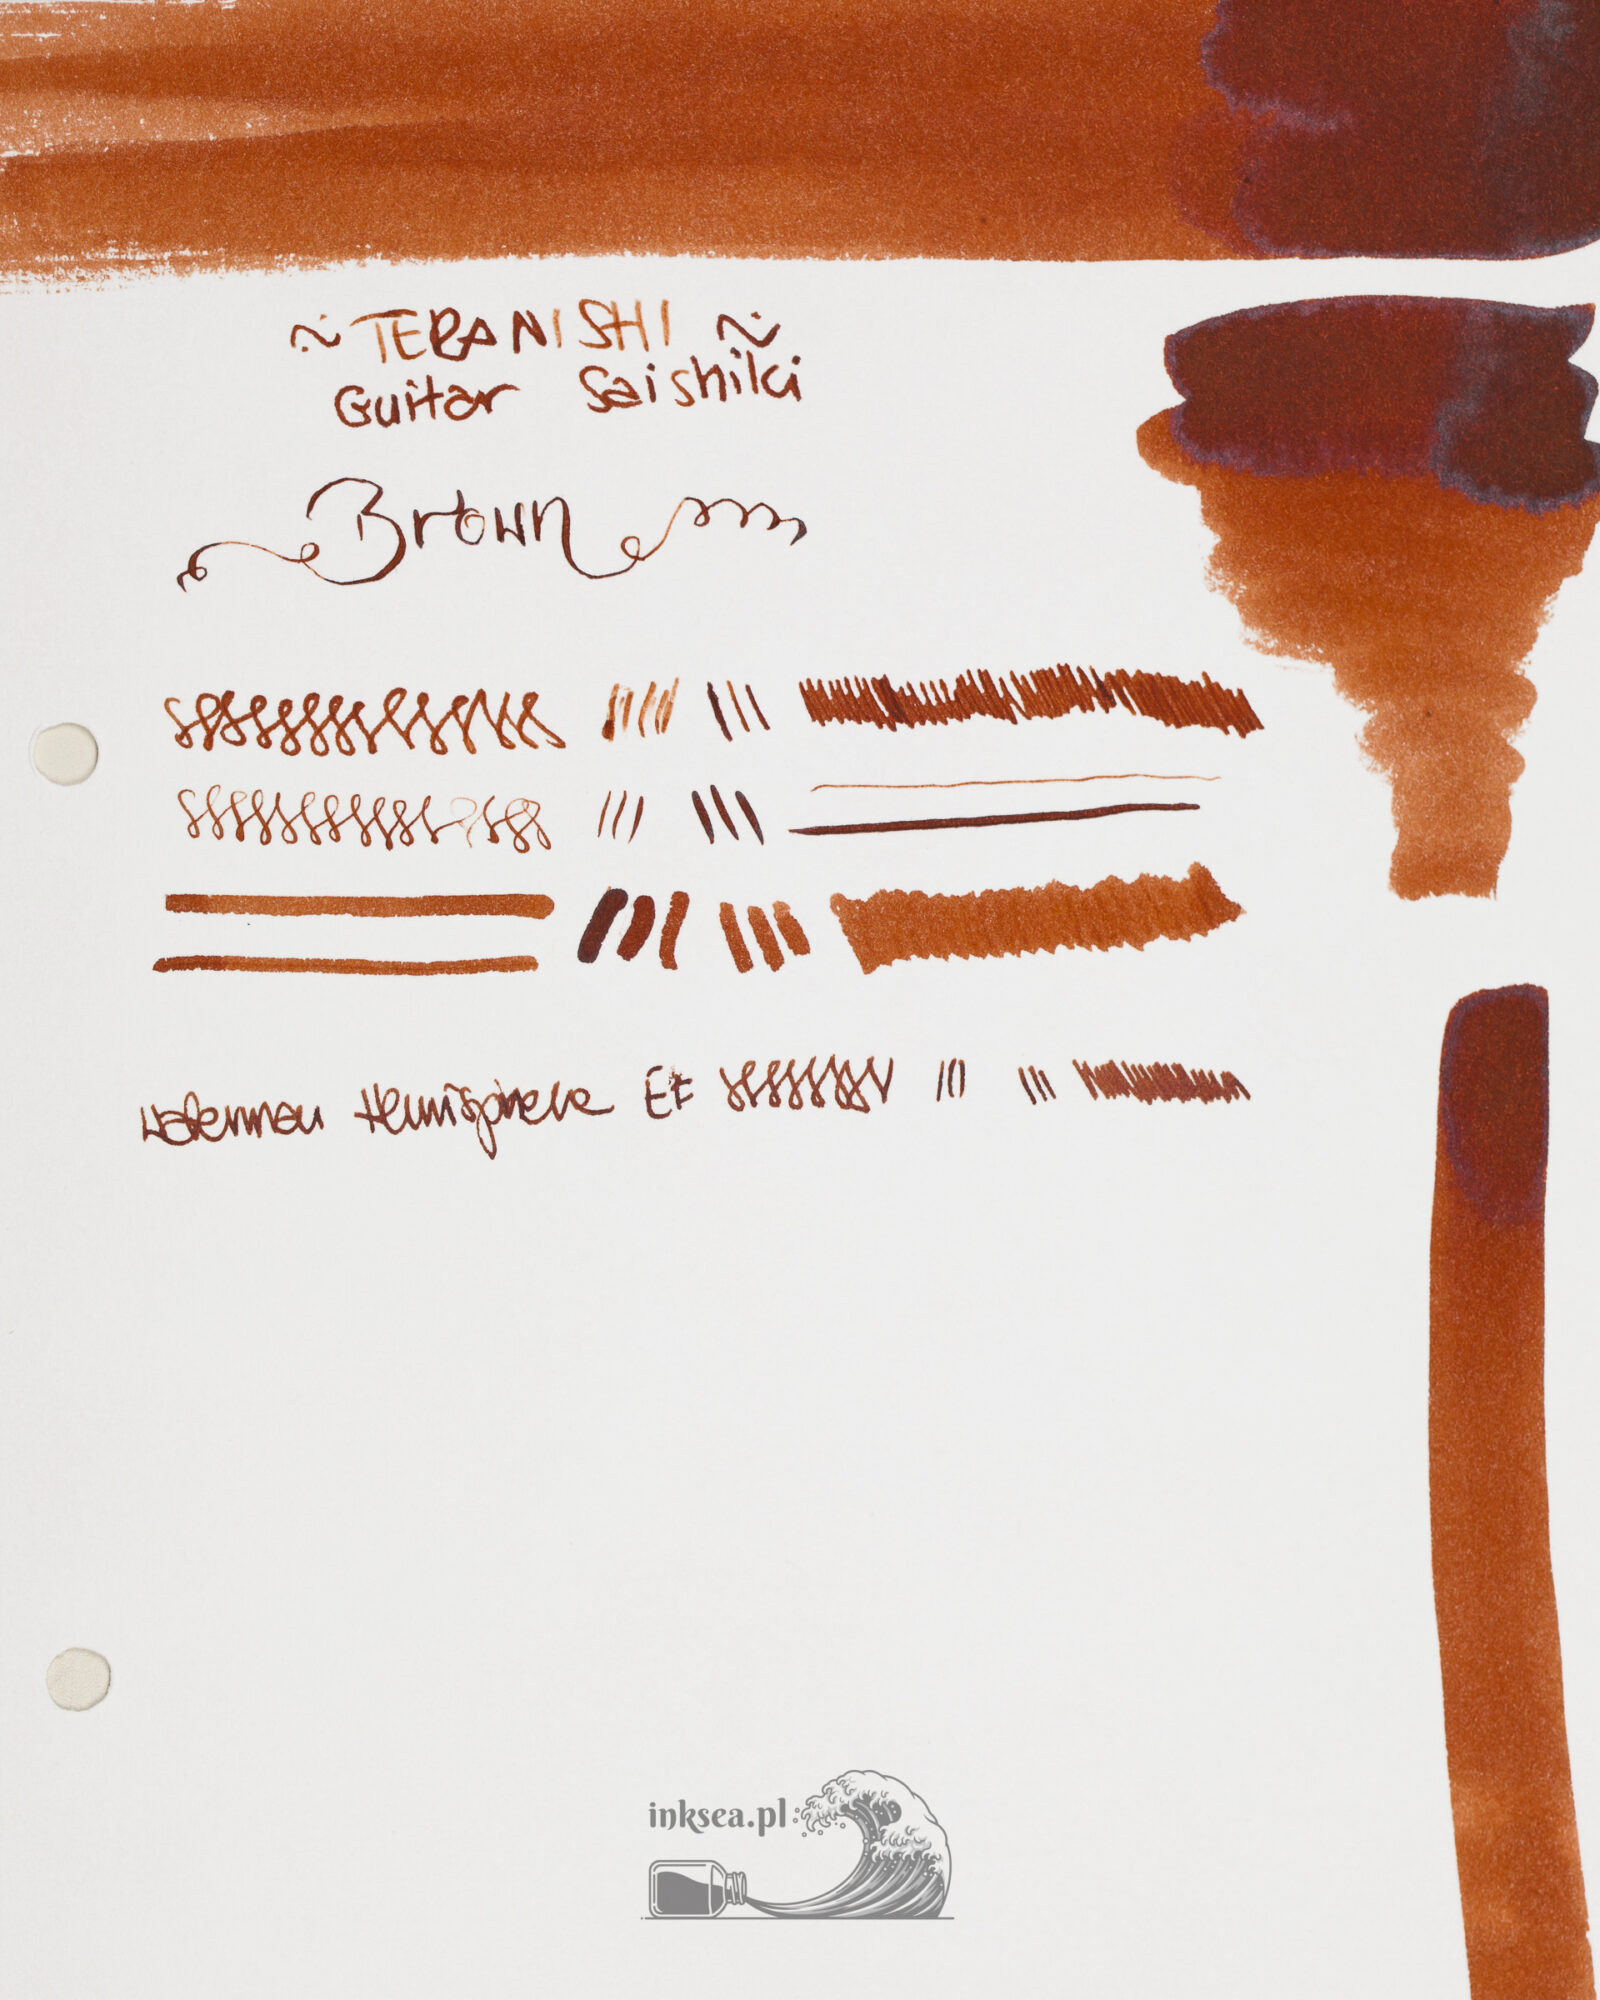 ~ TERANISHI ~
Guitar Saishiki
Brown
Waterman Hemisphere EF
inksea.pl